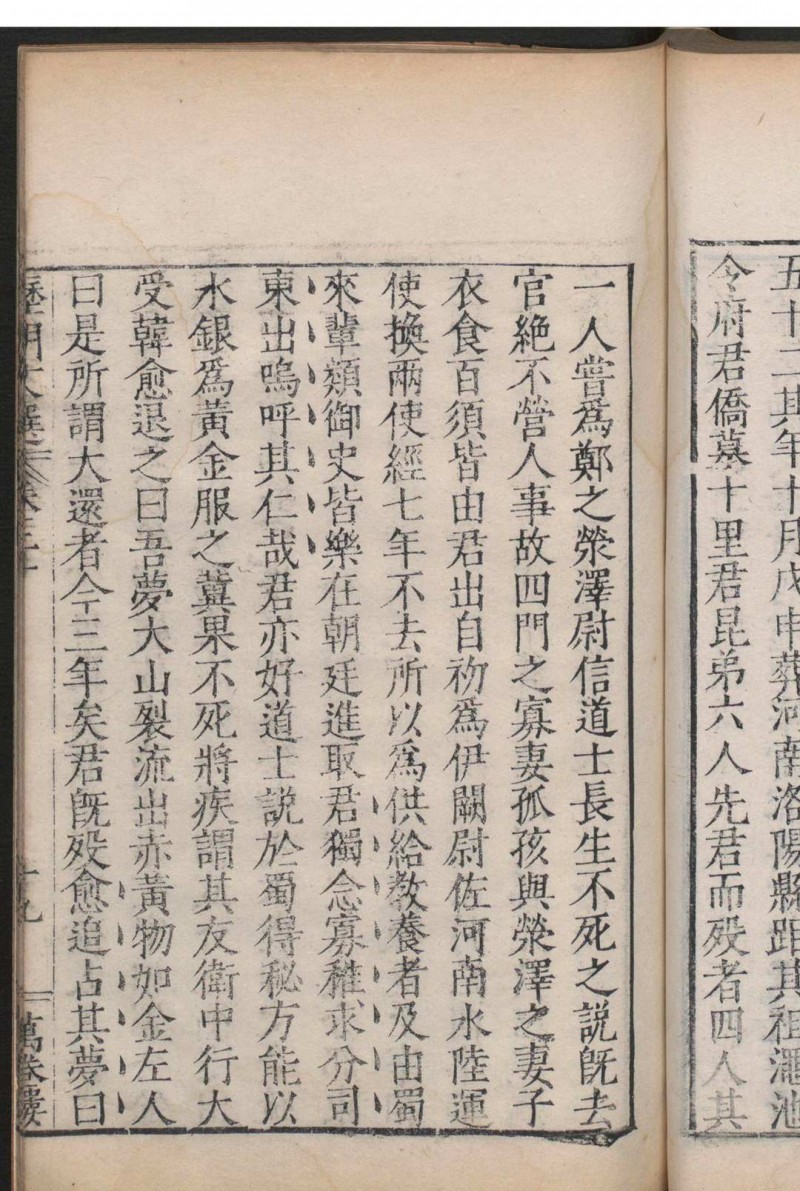 五十二其年十月戊申葬河南洛陽縣距其祖澠池
令府君僑墓十里君昆弟六人先君而歿者四人其
一人嘗爲鄭之滎澤尉信道士長生不死之說旣去
官絕不營人事故四門之寡妻孤孩與滎澤之妻子
衣食百須皆由君出自初爲伊闕尉佐河南水陸運
使換兩使經七年不去所以爲供給教養者及由蜀
來輩類御史皆樂在朝廷進取君獨念寡稚求分司
東出嗚呼其仁哉君亦好道士說於蜀得秘方能以
水銀爲黃金服之冀果不死將疾謂其友衛中行大
受韓愈退之曰吾夢大山裂流出赤黃物如金左人
曰是所謂大還者今三年矣君旣歿愈追占其夢曰
歷朝文選 卷三十 十九 萬卷樓